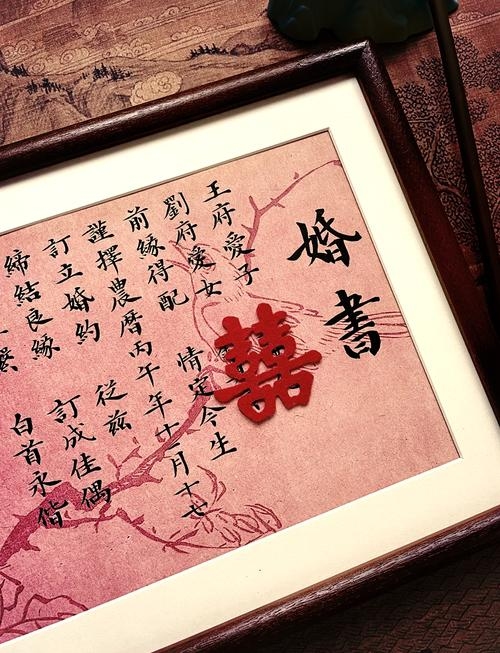 婚書
囍
王府愛子
劉府愛女
前緣得配 情定今生
謹擇農曆丙午年十一月十七
訂立婚約 從茲
締結良緣 訂成佳偶
白首永偕